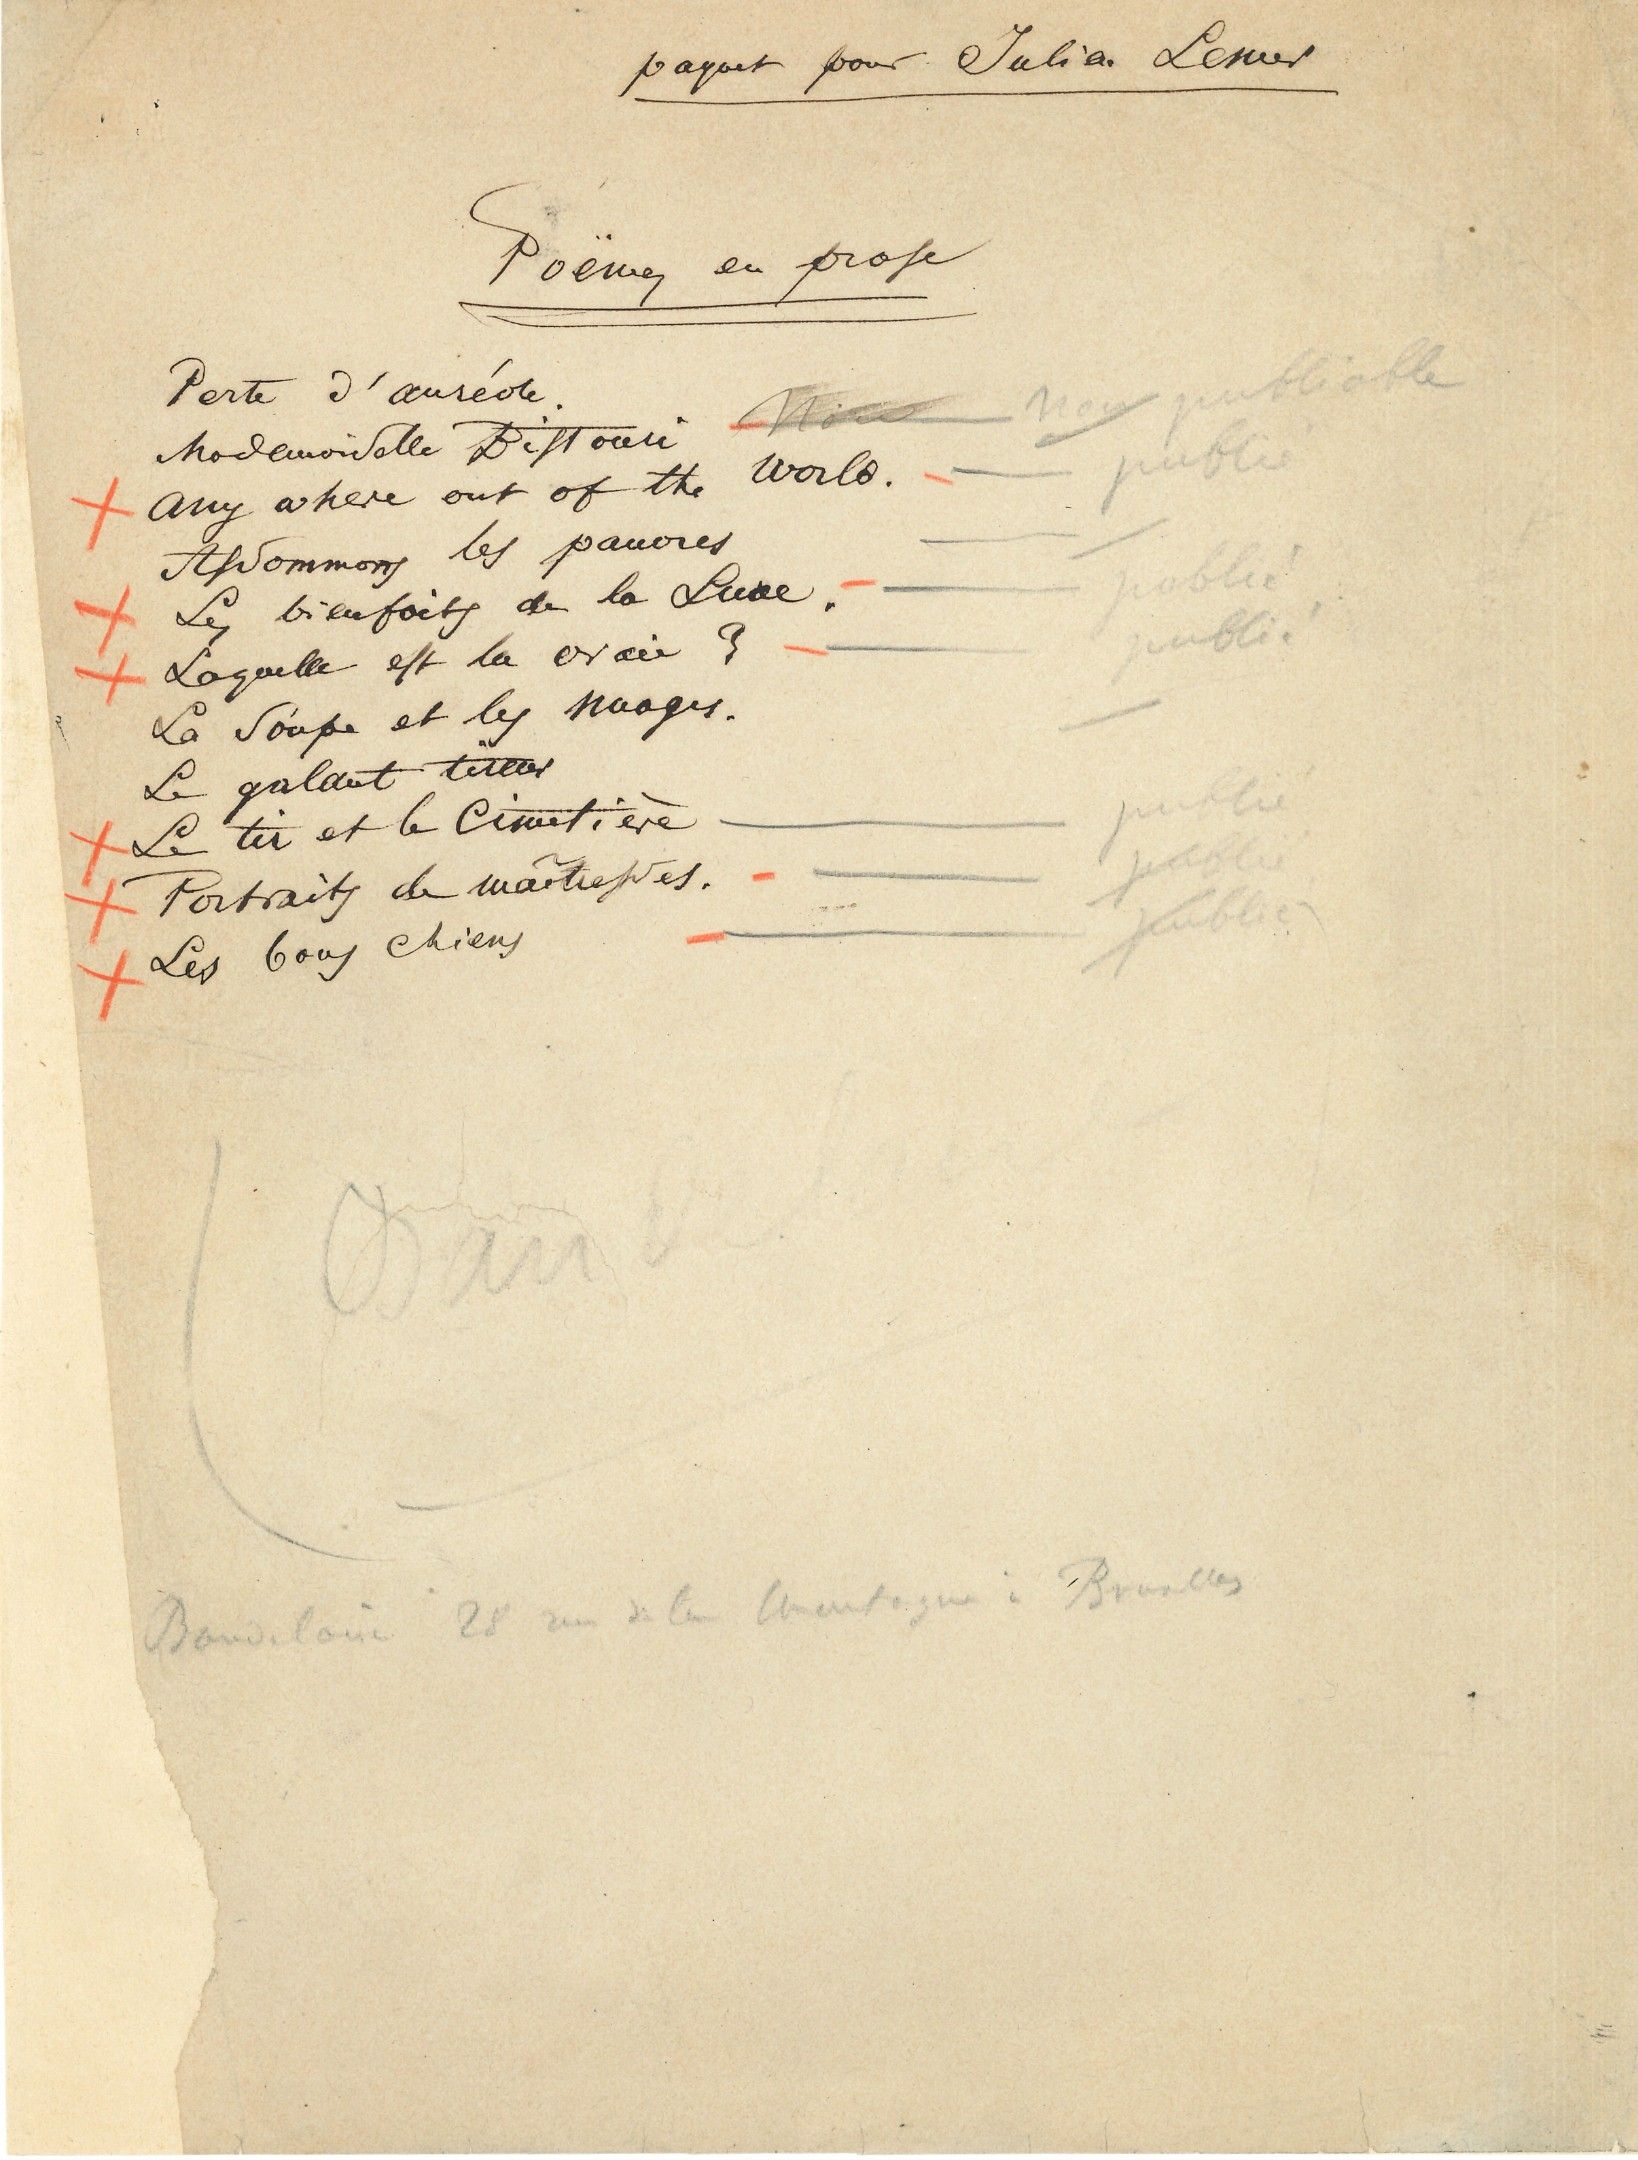 paquet pour Julien Lemer
Poëmes en prose
Perte d'auréole.
Mademoiselle Bistouri Non — Non publiable
Any where out of the World. — publié
Assommons les pauvres —
Les bienfaits de la Lune. — publié
Laquelle est la vraie ? — publié
La Soupe et les nuages. —
Le galant tireur
Le tir et le Cimetière — publié
Portraits de maîtresses. — publié
Les bons chiens — publié
Baudelaire 28 rue de la Montagne à Bruxelles